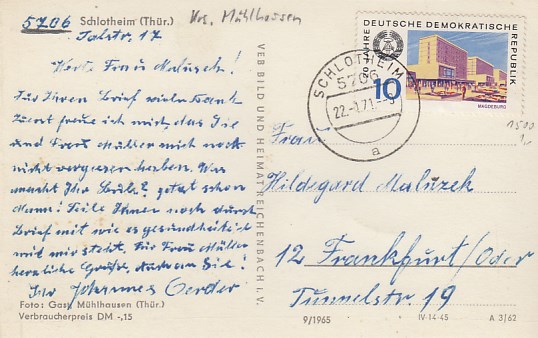 5706 Schlotheim (Thür.)
Talstr. 17
Krs. Mühlhausen
Wert. Frau Maluzek!
Für Ihren Brief vielen Dank
Zuerst freue ich mich, das Sie
und Frau Müller mich noch
nicht vergessen haben. Was
macht Ihr Beule? jetzt schon
Mann! Teile Ihnen noch durch
Brief mit wie es gesundheitlich
mit mir steht. Für Frau Müller
herzliche Grüße, auch an Sie!
Ihr Johannes Oerder
Foto: Gast, Mühlhausen (Thür.)
Verbraucherpreis DM -,15
VEB BILD UND HEIMAT REICHENBACH i. V.
20 JAHRE DEUTSCHE DEMOKRATISCHE REPUBLIK
10
MAGDEBURG
SCHLOTHEIM
5706
22.-1.71.-9
a
1500
Frau
Hildegard Maluzek
12 Frankfurt/Oder
Tunnelstr. 19
9/1965
IV-14-45
A 3/62